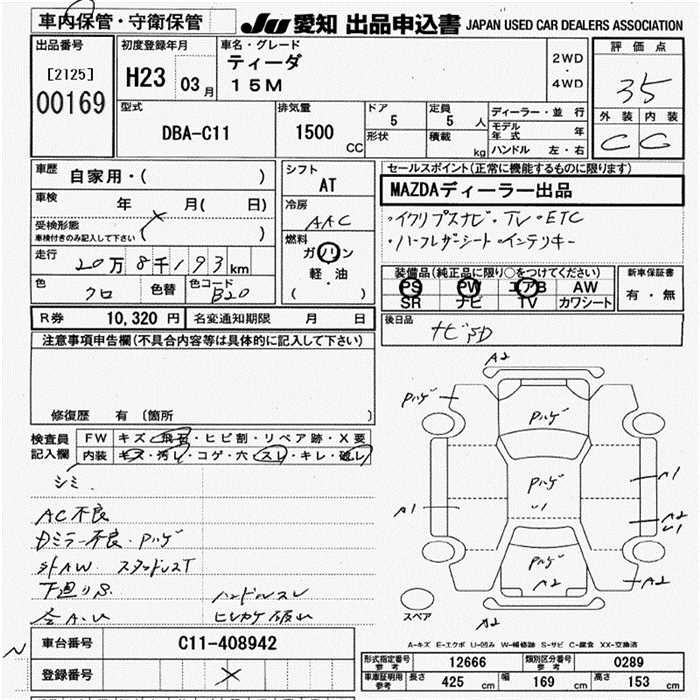 車内保管・守衛保管
JU 愛知 出品申込書 JAPAN USED CAR DEALERS ASSOCIATION
出品番号
[2125]
00169
初度登録年月
H23 03月
車名・グレード
ティーダ
15M
2WD
・
4WD
評価点
35
外装 内装
C C
型式
DBA-C11
排気量
1500 CC
ドア
5
定員
5 人
形状
積載
kg
ディーラー・並行
モデル年式 年
ハンドル 左・右
車歴
自家用・( )
車検
年 月( 日)
受検形態
車検付きのみ記入して下さい ( )
走行
20万8千193km
色
クロ
色替
色コード
B20
シフト
AT
冷房
AAC
燃料
ガソリン
軽・油
( )
セールスポイント(正常に機能するものに限ります)
MAZDAディーラー出品
・イクリプスナビ・TV・ETC
・ハーフレザーシート・インテリキー
装備品(純正品に限り○をつけてください)
PS PW エアB AW
SR ナビ TV カワシート
新車保証書
有・無
R券 10,320円 名変通知期限 月 日
後日品
ナビSD
注意事項申告欄(不具合内容等は具体的に記入して下さい)
修復歴 有(箇所 )
検査員
記入欄
FW キズ・飛石・ヒビ割・リペア跡・X要
内装 キズ・汚レ・コゲ・穴・スレ・キレ・破レ
シミ
AC不良
Dミラー不良・Pハゲ
外AW スタッドレスT
下廻りS
全A.U
ハンドルスレ
ヒレカケ破レ
A2
Pハゲ
Pハゲ
Pハゲ
Pハゲ
A2
A1
A1
A2
A2
A2
スペア
A-キズ E-エクボ U-凹み W-補修跡 S-サビ C-腐食 XX-交換済
車台番号 C11-408942
登録番号
形式指定番号参考 12666 類別区分番号参考 0289
車庫証明用参考 長さ 425 cm 幅 169 cm 高さ 153 cm